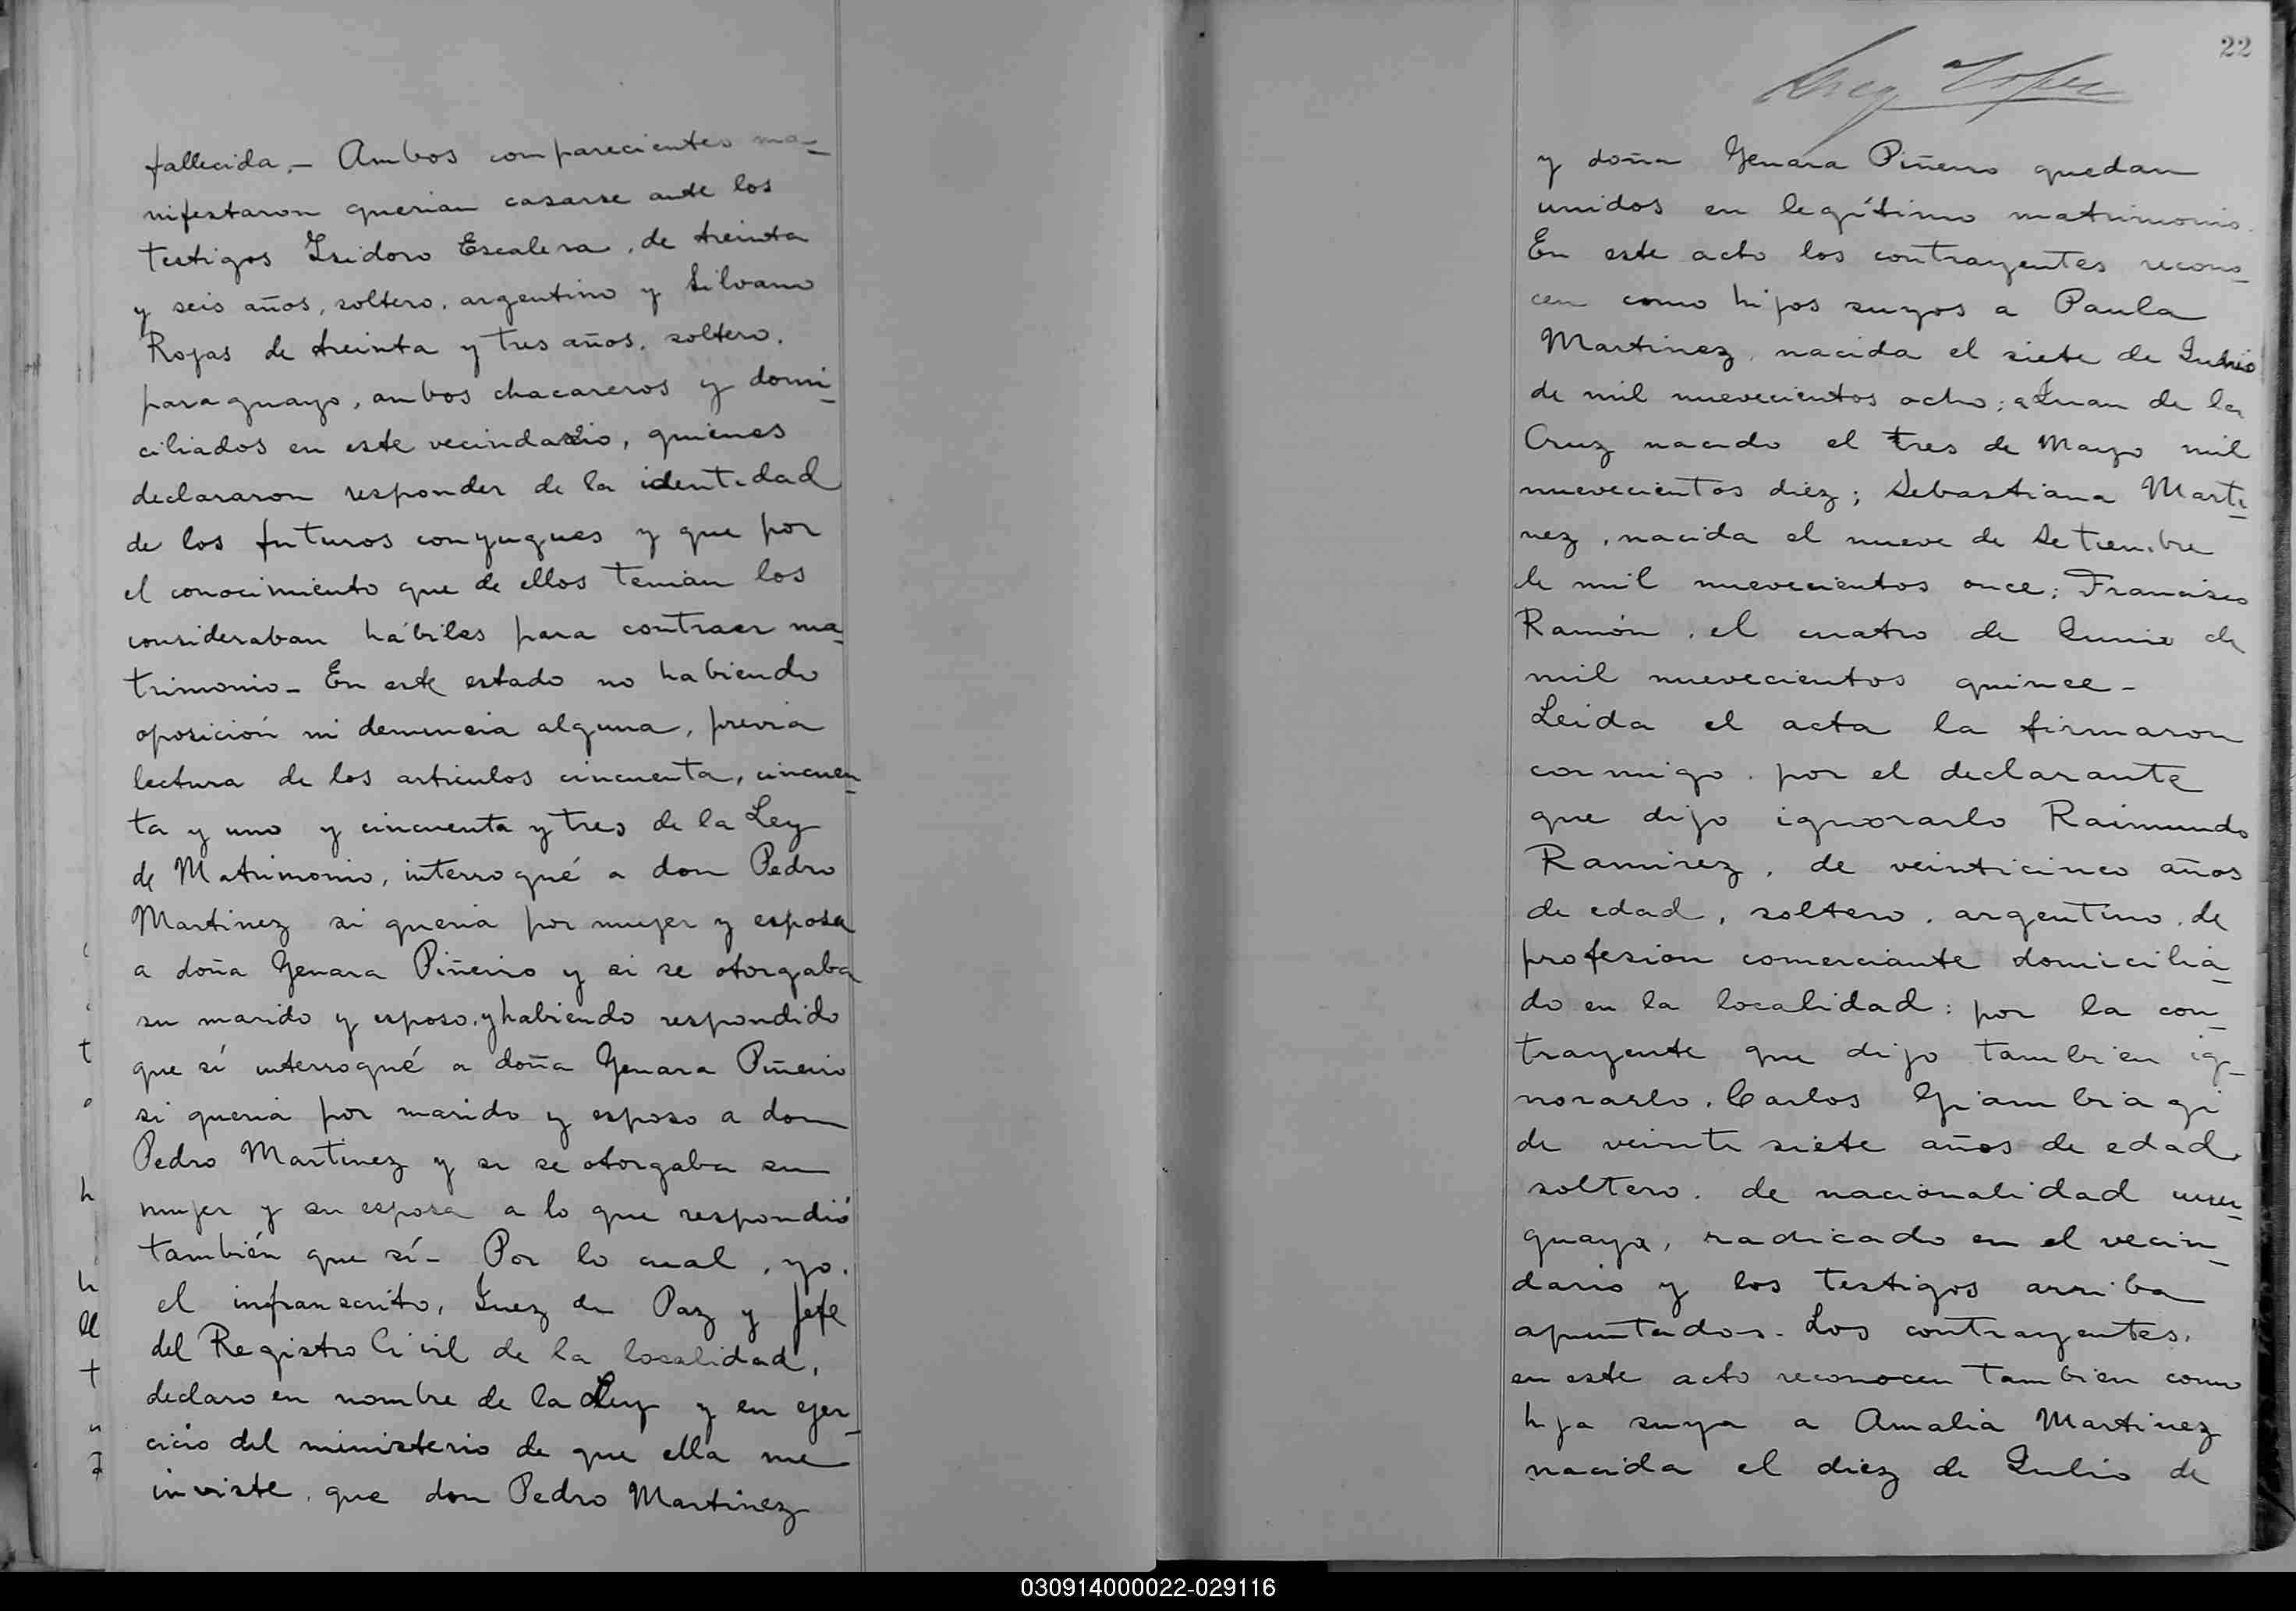 fallecida.— Ambos comparecientes ma-
nifestaron querian casarse ante los
testigos Isidoro Escalera, de treinta
y seis años, soltero, argentino y Silvano
Rojas de treinta y tres años, soltero,
paraguayo, ambos chacareros y domi-
ciliados en este vecindario, quienes
declararon responder de la identidad
de los futuros conyugues y que por
el conocimiento que de ellos tenian los
consideraban hábiles para contraer ma-
trimonio - En este estado no habiendo
oposición ni denuncia alguna, previa
lectura de los articulos cincuenta, cincuen-
ta y uno y cincuenta y tres de la Ley
de Matrimonio, interrogué a don Pedro
Martinez si queria por mujer y esposa
a doña Genara Piñeiro y si se otorgaba
su marido y esposo, y habiendo respondido
que sí interrogué a doña Genara Piñeiro
si queria por marido y esposo a don
Pedro Martinez y si se otorgaba su
mujer y su esposa a lo que respondió
también que sí - Por lo cual, yo,
el infranscrito, Juez de Paz y Jefe
del Registro Civil de la localidad,
declaro en nombre de la Ley y en ejer-
cicio del ministerio de que ella me
inviste, que don Pedro Martinez
22
y doña Genara Piñeiro quedan
unidos en legítimo matrimonio.
En este acto los contrayentes recono-
cen como hijos suyos a Paula
Martinez, nacida el siete de
de mil nuevecientos ocho; a Juan de la
Cruz nacido el tres de Mayo mil
nuevecientos diez; Sebastiana Marti-
nez, nacida el nueve de Setiembre
de mil nuevecientos once; Francisco
Ramón, el cuatro de Junio de
mil nuevecientos quince -
Leida el acta la firmaron
conmigo, por el declarante
que dijo ignorarlo Raimundo
Ramirez, de veinticinco años
de edad, soltero, argentino, de
profesion comerciante domicilia-
do en la localidad: por la con-
trayente que dijo tambien ig-
norarlo, Carlos Giambiagi
de veinte siete años de edad,
soltero, de nacionalidad uru-
guaya, radicado en el vecin-
dario y los testigos arriba
apuntados - Los contrayentes,
en este acto reconocen tambien como
hija suya a Amalia Martinez
nacida el diez de Julio de
030914000022-029116